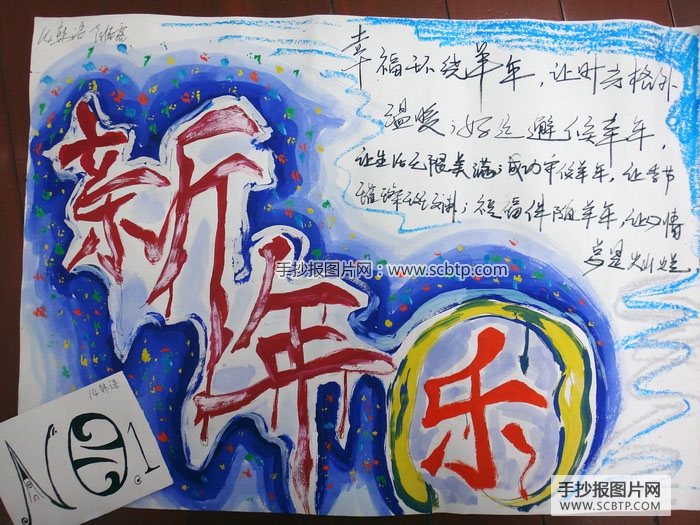 14韩语
幸福环绕羊年，让时光格外
温暖；好运邂逅羊年，
让生活无限美满；成功牵伴羊年，让季节
璀璨；祝福伴随羊年，让心情
总是灿烂
新年乐
手抄报图片网：www.scbtp.com
14韩语
NO.1
手抄报图片网
WWW.SCBTP.COM